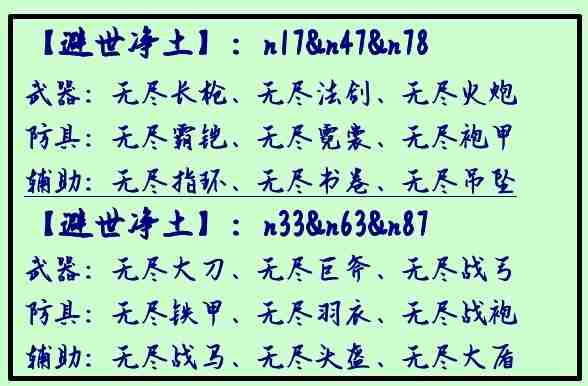 【避世净土】：n17&n47&n78
武器：无尽长枪、无尽法剑、无尽火炮
防具：无尽霸铠、无尽霓裳、无尽袍甲
辅助：无尽指环、无尽书卷、无尽吊坠
【避世净土】：n33&n63&n87
武器：无尽大刀、无尽巨斧、无尽战弓
防具：无尽铁甲、无尽羽衣、无尽战袍
辅助：无尽战马、无尽头盔、无尽大盾